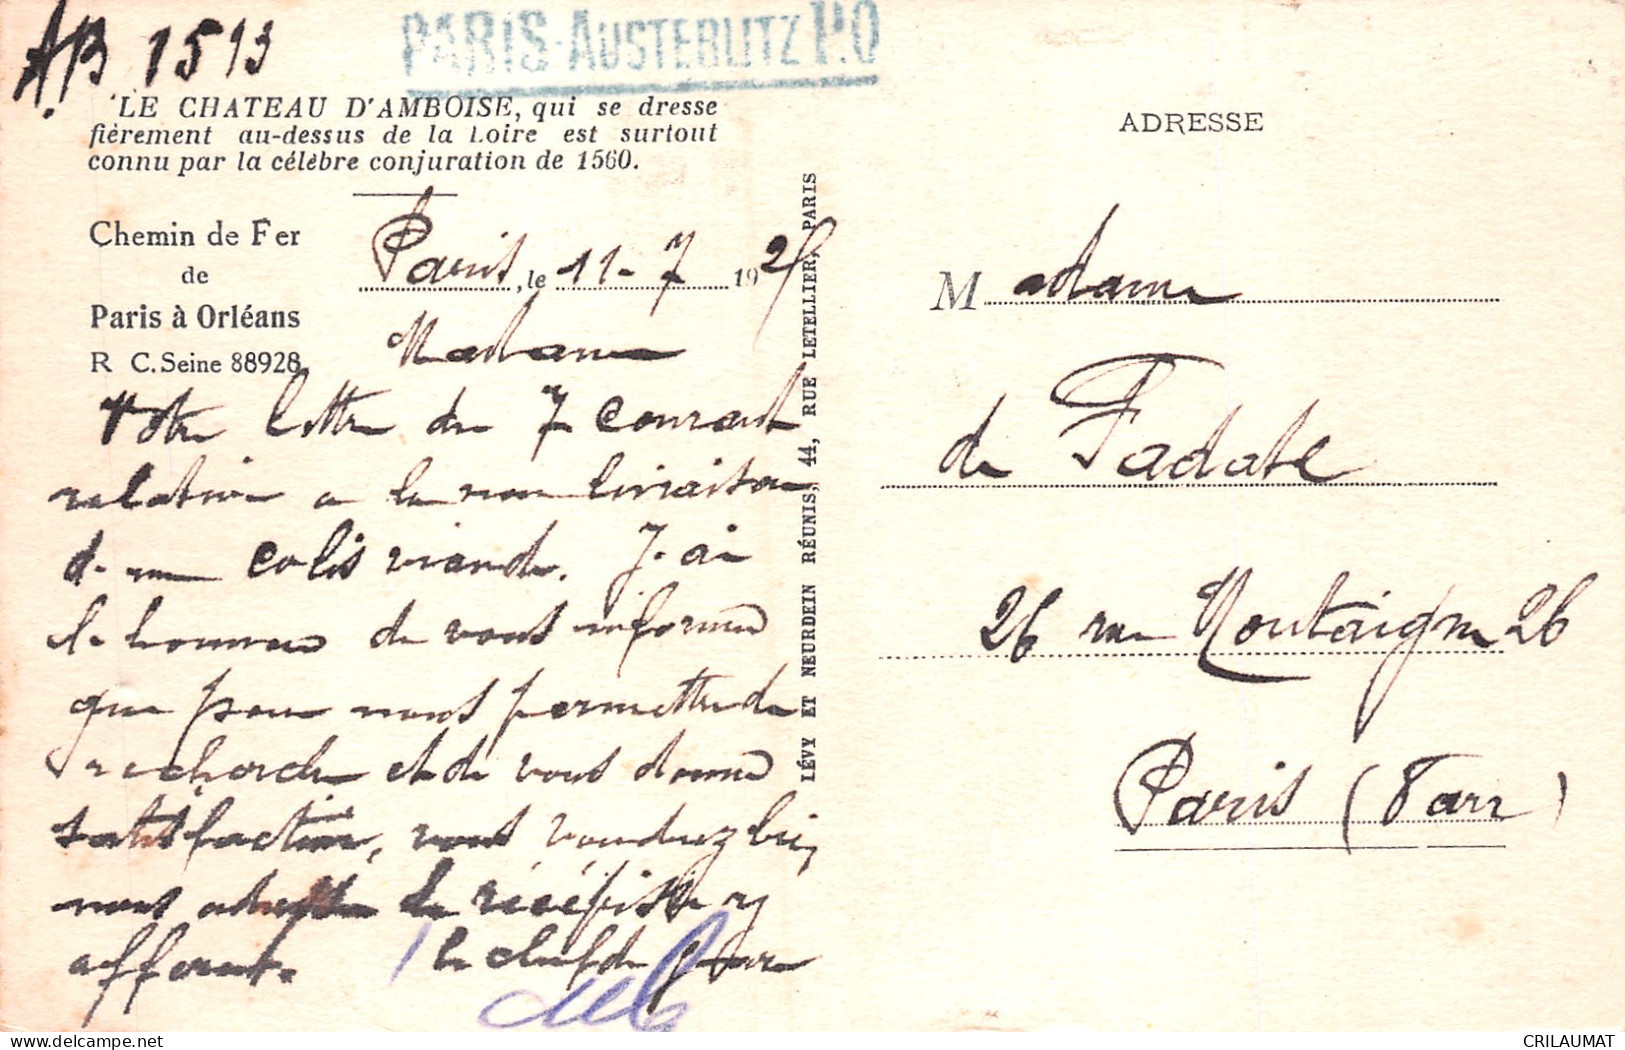 AB 1513
PARIS-AUSTERLITZ P.O
LE CHATEAU D'AMBOISE, qui se dresse
fièrement au-dessus de la Loire est surtout
connu par la célèbre conjuration de 1560.
Chemin de Fer
de
Paris à Orléans
R C. Seine 88928
Paris, le 11-7 192
Madame
Votre lettre du 7 courant
relative a la non livraison
d'un colis viande. J'ai
l'honneur de vous informer
que pour nous permettre de
rechercher et de vous donner
satisfaction, vous voudrez bien
nous adresser le récépissé y
afférent. le chef de gare
LÉVY ET NEURDEIN RÉUNIS, 44, RUE LETELLIER, PARIS
ADRESSE
Madame
de Fadate
26 rue Montaigne 26
Paris (
CRILAUMAT